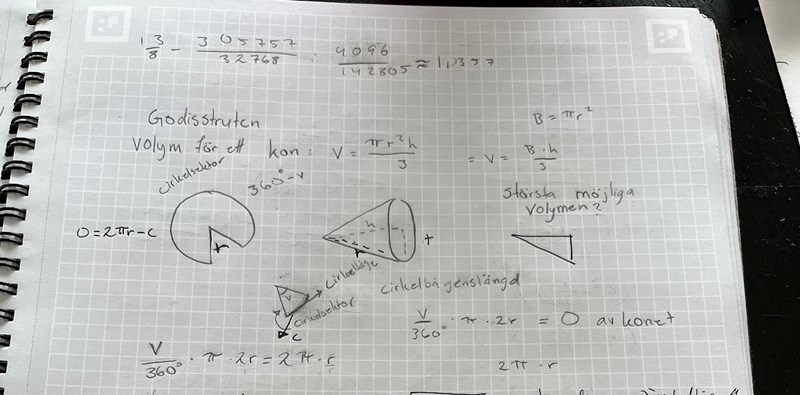 13/8 - 305757/32768 : 4096/142805 ≈ 1,0357
Godisstruten
B = πr²
Volym för ett kon: V = πr²h/3 = V = B·h/3
Cirkelsektor
360°-v
Största möjliga
volymen?
O=2πr-c
r
h
r
r
v
Cirkelbåge
Cirkelbågenslängd
Cirkelsektor
c
v/360° · π · 2r = O av konet
v/360° · π · 2r = 2π · r
2π · r